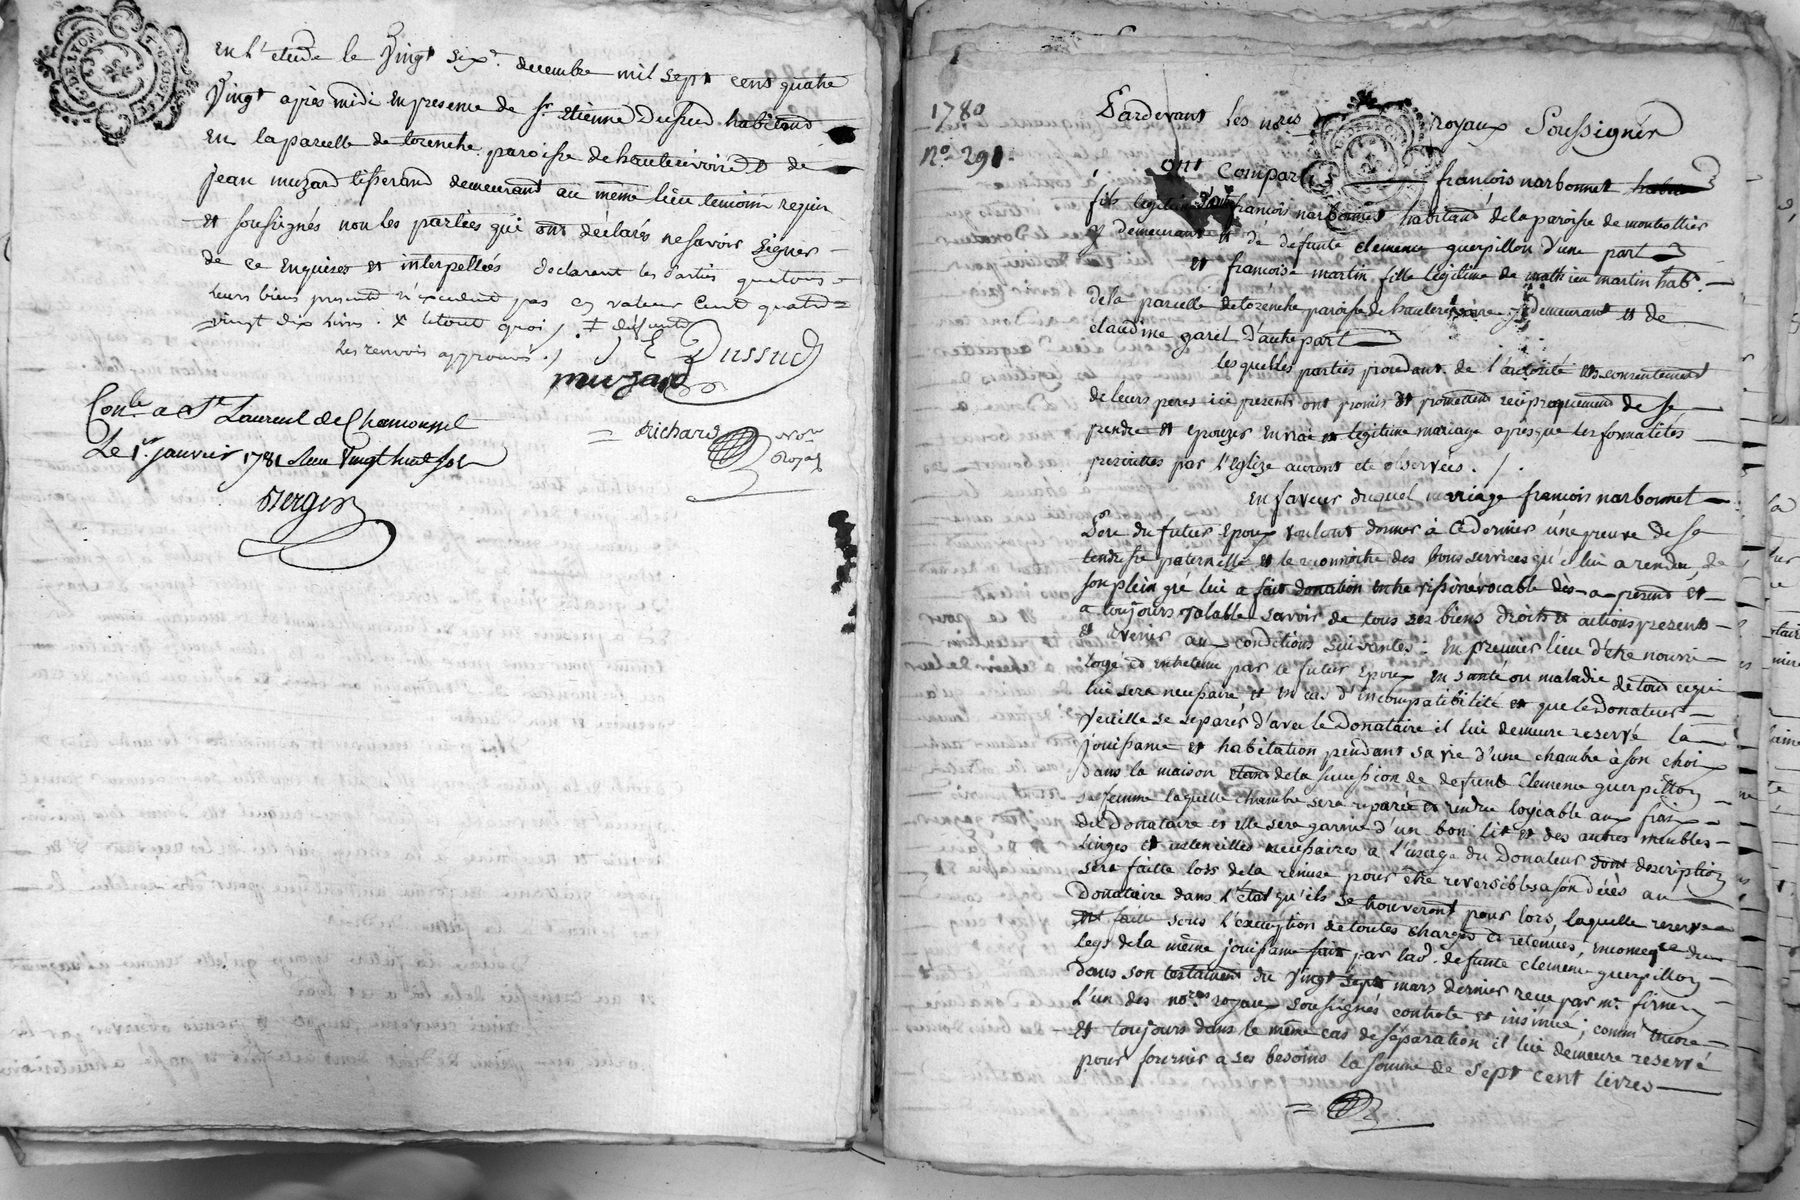 en l'etude le Vingt six.e decembre mil sept cent quatre
Vingt après midi en presence de Sr. Etienne Dussud habitant
en la parcelle de torenche paroisse de hauterivoire et de
jean muzard tisserand demeurant au même lieu temoins requis
et soussignés non les parties qui ont déclarés ne savoir signer
de ce enquises et interpellées declarent les parties que tous
leurs biens presents n'excedent pas en valeur cent quatre
vingt dix livres . x le tout quoi / . ≠ défunte
les renvois approuvés . /
E Dussud
muzard
Richard Nore
Royal
Conlé a St Laurent de Chamousset
Le 1er janvier 1781 Reçu Vingt huit sols
Bergin
G. DE LYON
1780
No. 291.
Pardevant les nores royaux Soussignés
ont Comparu françois narbonnet
fils legitime d'aut. françois narbonnet habitant de la paroisse de montrottier
y demeurant et de defunte clemence guerpillon d'une part
et françoise martin fille legitime de mathieu martin habt.
de la parcelle de torenche paroisse de hauterivoire y demeurant et de
claudine garel d'autre part
lesquelles parties procedant de l'autorité et consentement
de leurs peres ici presents ont promis et promettent reciproquement de se
prendre et epouzer en vrai et legitime mariage apres que les formalités
prescrittes par l'Eglize auront eté observées . / .
en faveur duquel mariage françois narbonnet
Père du futur Epoux voulant donner à ce dernier une preuve de sa
tendresse paternelle et le reconnoitre des bons services qu'il lui a rendu, de
son plein gré lui a fait donation entre vifs irrévocable dès-a-present et
a toujours valable savoir de tous ses biens droits et actions presents
et avenir aux conditions suivantes : En premier lieu d'etre nourri
logé et entretenu par le futur Epoux en santé ou maladie de tout ce qui
lui sera necessaire et en cas d'incompatibilité et que le Donateur
veuille se separer d'avec le Donataire il lui demeure reservé la
jouissance et habitation pendant sa vie d'une chambre à son choix
dans la maison étant de la succession de defunte Clemence guerpillon
sa femme laquelle chambre sera reparée et rendue logeable aux fraix
du Donataire et elle sera garnie d'un bon lit et des autres meubles
linges et ustencilles necessaires a l'usage du Donateur dont description
sera faitte lors de la remise pour être reversibles a son décès au
Donataire dans l'état qu'ils se trouveront pour lors, laquelle reserve
est faitte sous l'exception de toutes charges et retenues,
legs de la même jouissance fait par lade. defunte clemence guerpillon
dans son testament du vingt sept mars dernier recu par me. firmin
l'un des nores royaux soussignés controlé et insinué ; comme encore
et toujours dans le même cas de séparation il lui demeure reservé
pour fournir a ses besoins la somme de sept cent livres